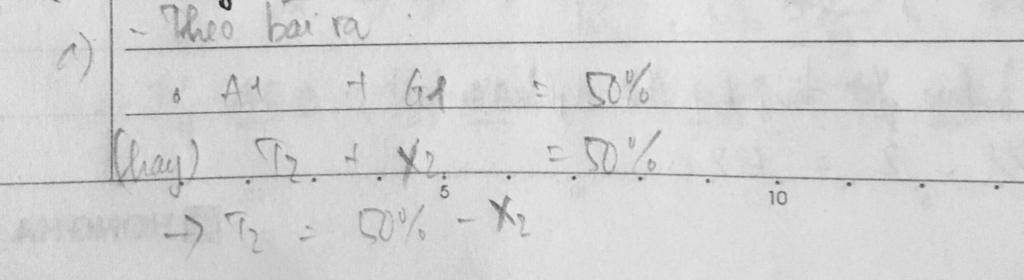 1) - Theo bài ra :
• A1 + G1 = 50%
(hay) T2 + X2 = 50%
5 10
→ T2 = 50% - X2
HONG HA